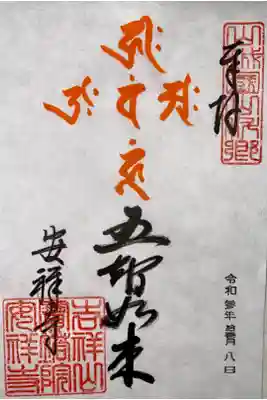 奉拝
山城國山科郷
五智如来
安祥寺
吉祥山
寶塔院
安祥寺
令和参年 月八日